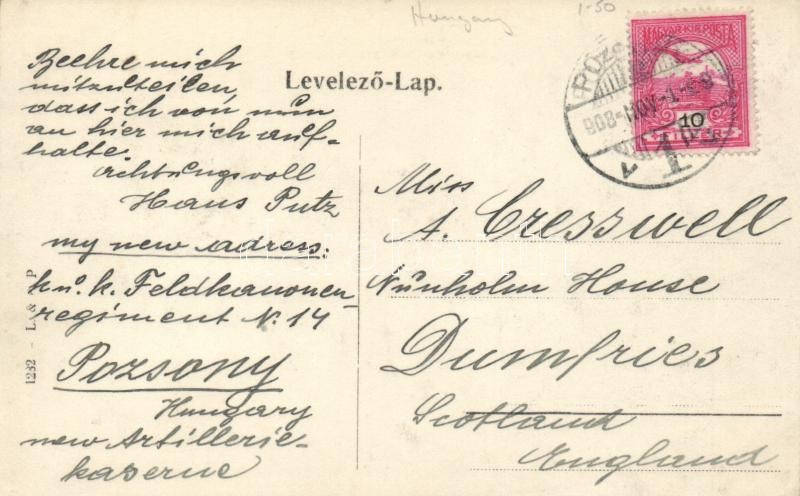 Hungary
1-50
Beehre mich
mitzuteilen,
dass ich von nun
an hier mich auf-
halte.
Achtungsvoll
Hans Putz
my new adress.
k. u. k. Feldkanonen-
regiment N. 14
Pozsony
Hungary
new Artillerie-
kaserne
1232 - L. & P
Levelező-Lap.
MAGYAR KIR. POSTA
10
FILLÉR
POZSONY
908 MÁJ
Miss
A. Cresswell
Nunholm House
Dumfries
Scotland
England